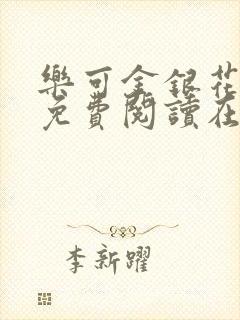 樂可金銀花
免費閱讀在
李新躍